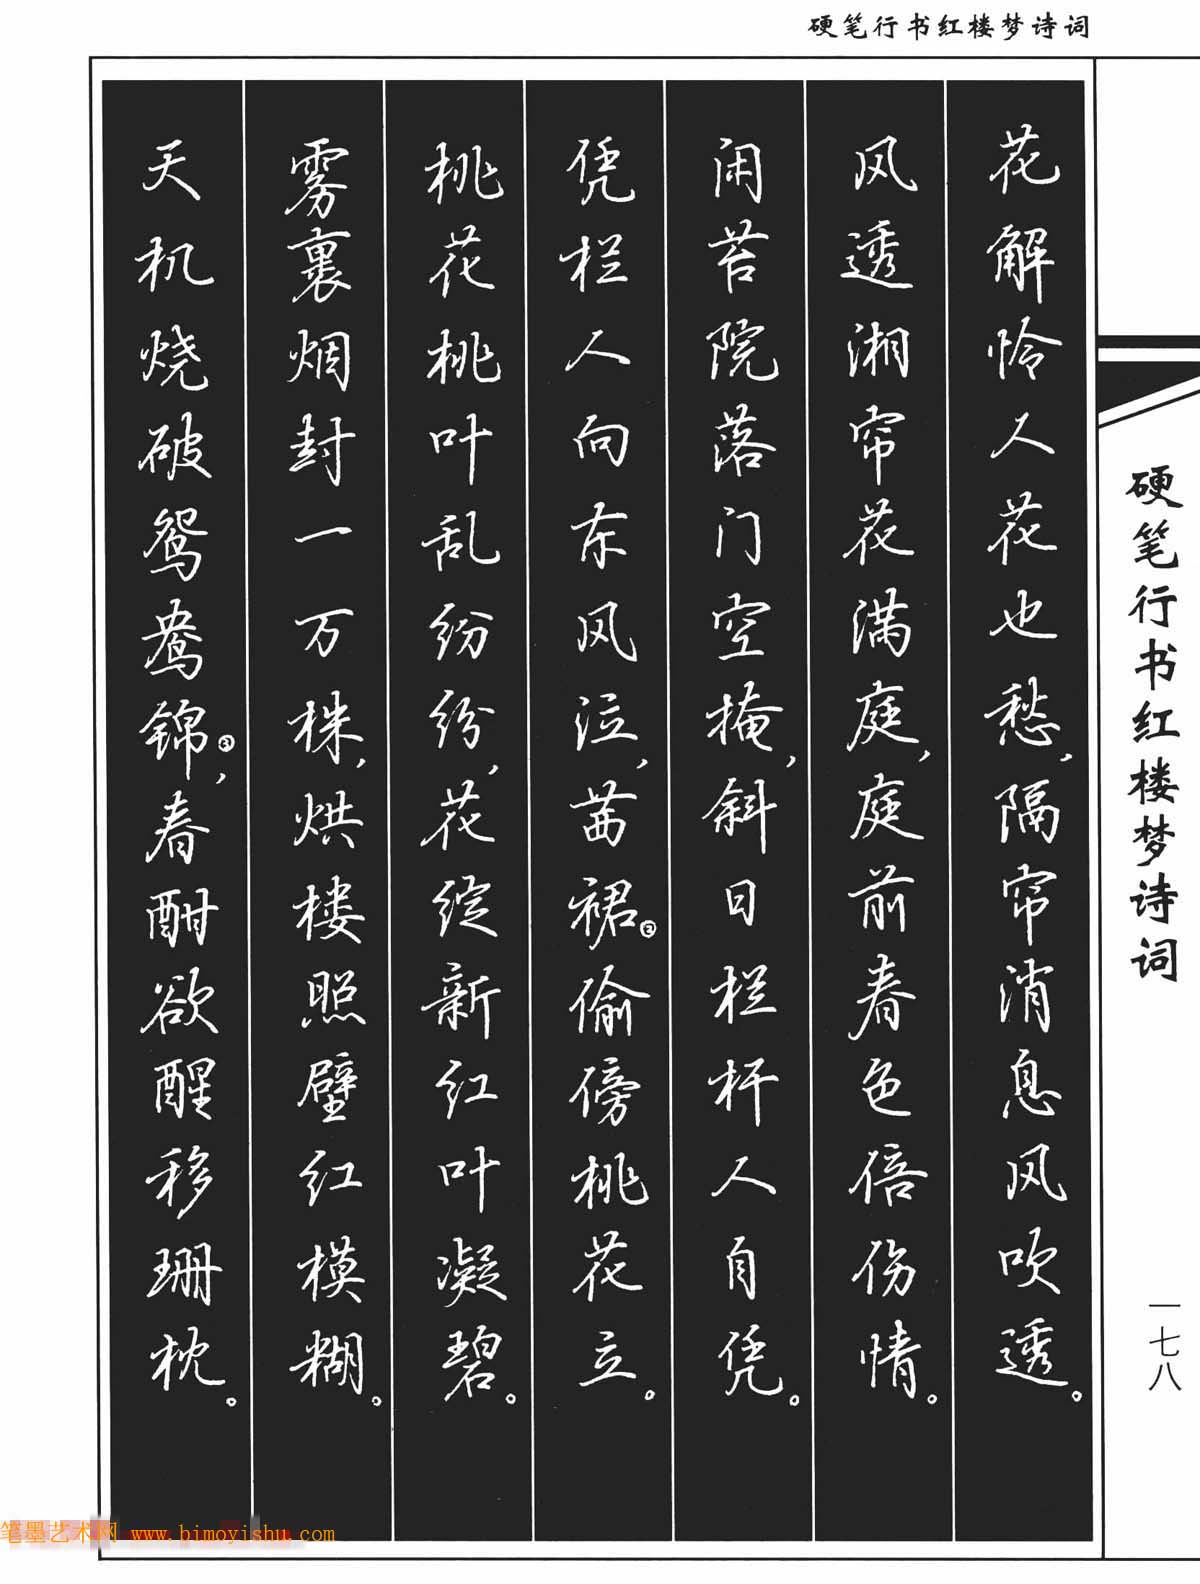 硬笔行书红楼梦诗词
花解怜人花也愁，隔帘消息风吹透。
风透湘帘花满庭，庭前春色倍伤情。
闲苔院落门空掩，斜日栏杆人自凭。
凭栏人向东风泣，茜裙②偷傍桃花立。
桃花桃叶乱纷纷，花绽新红叶凝碧。
雾裹烟封一万株，烘楼照壁红模糊。
天机烧破鸳鸯锦③，春酣欲醒移珊枕。
硬笔行书红楼梦诗词
一七八
笔墨艺术网 www.bimoyishu.com